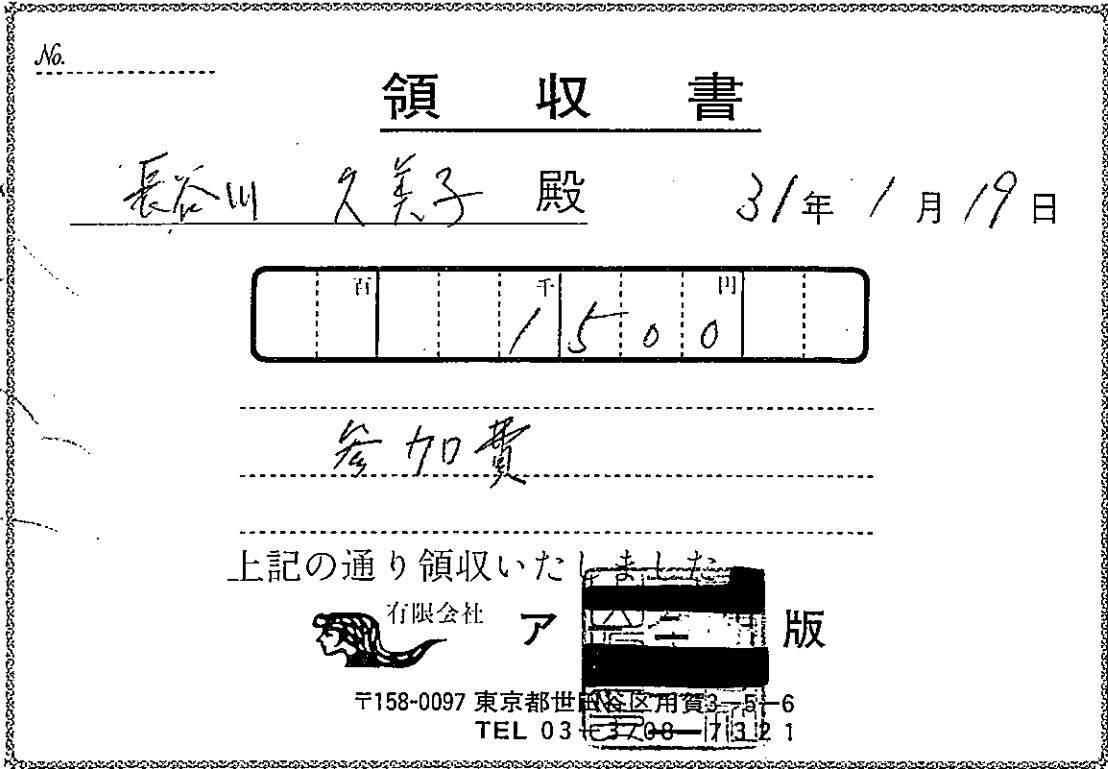 No.
領収書
長谷川 久美子 殿 31年1月19日
百 千 円
1500
参加費
上記の通り領収いたしました
有限会社 ア ニ 版
〒158-0097 東京都世田谷区用賀3-5-6
TEL 03-3708-7321